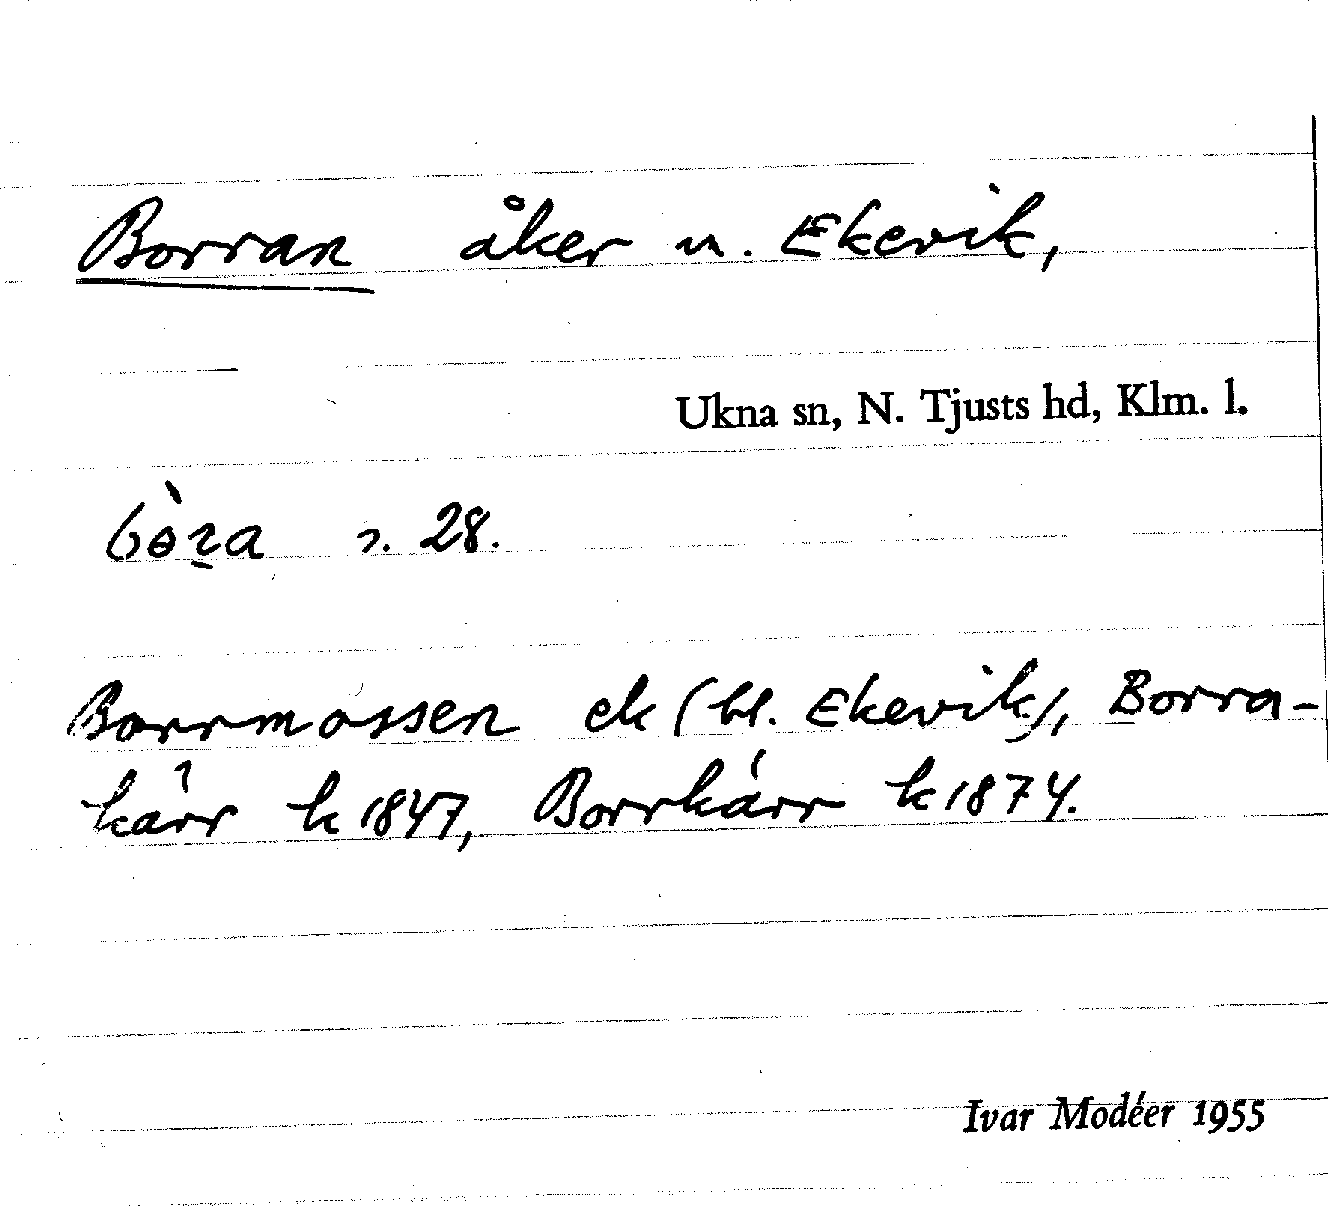 Borran åker n. Ekevik,
Ukna sn, N. Tjusts hd, Klm. l.
bɵ̀ɽa 28.
Borrmossen ek (bl. Ekevik), Borra-
kärr k 1847, Borrkärr k 1874.
Ivar Modéer 1955